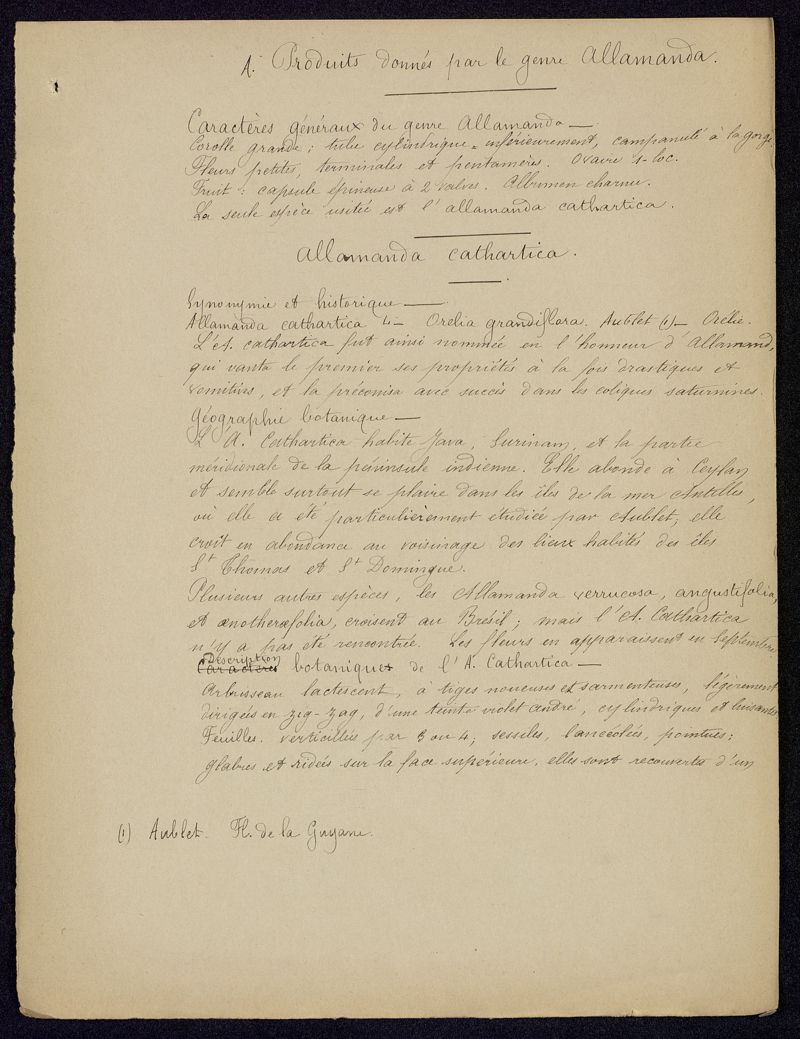 A. Produits donnés par le genre Allamanda.
Caractères généraux du genre Allamanda —
Corolle grande ; tube cylindrique inférieurement, campanulé à la gorge
Fleurs petites, terminales et pentamères. Ovaire 1-loc.
Fruit : capsule épineuse à 2 valves. Albumen charnu.
La seule espèce usitée est l'allamanda cathartica.
Allamanda cathartica.
Synonymie et historique —
Allamanda cathartica L — Orelia grandiflora. Aublet (1) — Orélie.
L'A. cathartica fut ainsi nommée en l'honneur d'Allamand,
qui vanta le premier ses propriétés à la fois drastiques et
vomitives, et la préconisa avec succès dans les coliques saturnines.
Géographie botanique —
L'A. Cathartica habite Java, Surinam, et la partie
méridionale de la péninsule indienne. Elle abonde à Ceylan
et semble surtout se plaire dans les îles de la mer Antilles,
où elle a été particulièrement étudiée par Aublet, elle
croît en abondance au voisinage des lieux habités des îles
St Thomas et St Domingue.
Plusieurs autres espèces, les Allamanda verrucosa, angustifolia,
et œnotheræfolia, croisent au Brésil ; mais l'A. Cathartica
n'y a pas été rencontrée. Les fleurs en apparaissent en septembre
Description
Caractères botaniques de l'A. Cathartica —
Arbrisseau lactescent, à tiges noueuses et sarmenteuses, légèrement
dirigées en zig-zag, d'une teinte violet cylindriques et luisantes
Feuilles. verticillées par 3 ou 4 ; sessiles, lancéolées, pointues ;
glabres et ridées sur la face supérieure, elles sont recouvertes d'un
(1) Aublet. Fl. de la Guyane.